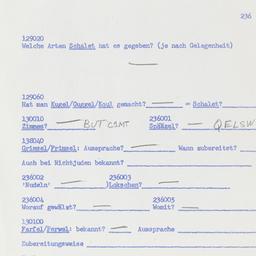 236
129020
Welche Arten Schalet hat es gegeben? (je nach Gelegenheit)
129060
Hat man Kugel/Guggel/Koul gemacht? = Schalet?
130010 236001
Zimmes? BUTCIMT Schälet? — QELSW
138040
Grimsel/Frimsel: Aussprache? Wann zubereitet?
Auch bei Nichtjuden bekannt?
236002 236003
'Nudeln' Lokschen?
236004 236005
Worauf gewälzt? Womit?
130100
Farfel/Ferwel: bekannt? Aussprache
Zubereitungsweise